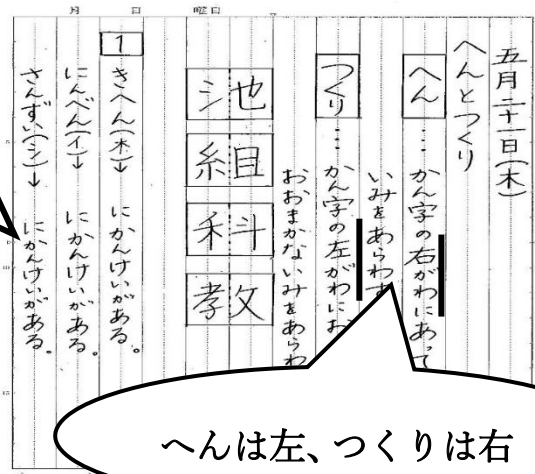 月 日 曜日
五月二十一日(木)
へんとつくり
へん…かん字の右がわにあって
いみをあらわす
つくり…かん字の左がわにお
おおまかないみをあらわ
池 組 科 教
1
きへん(木)→ にかんけいがある。
にんべん(イ)→ にかんけいがある。
さんずい(シ)→ にかんけいがある。
へんは左、つくりは右